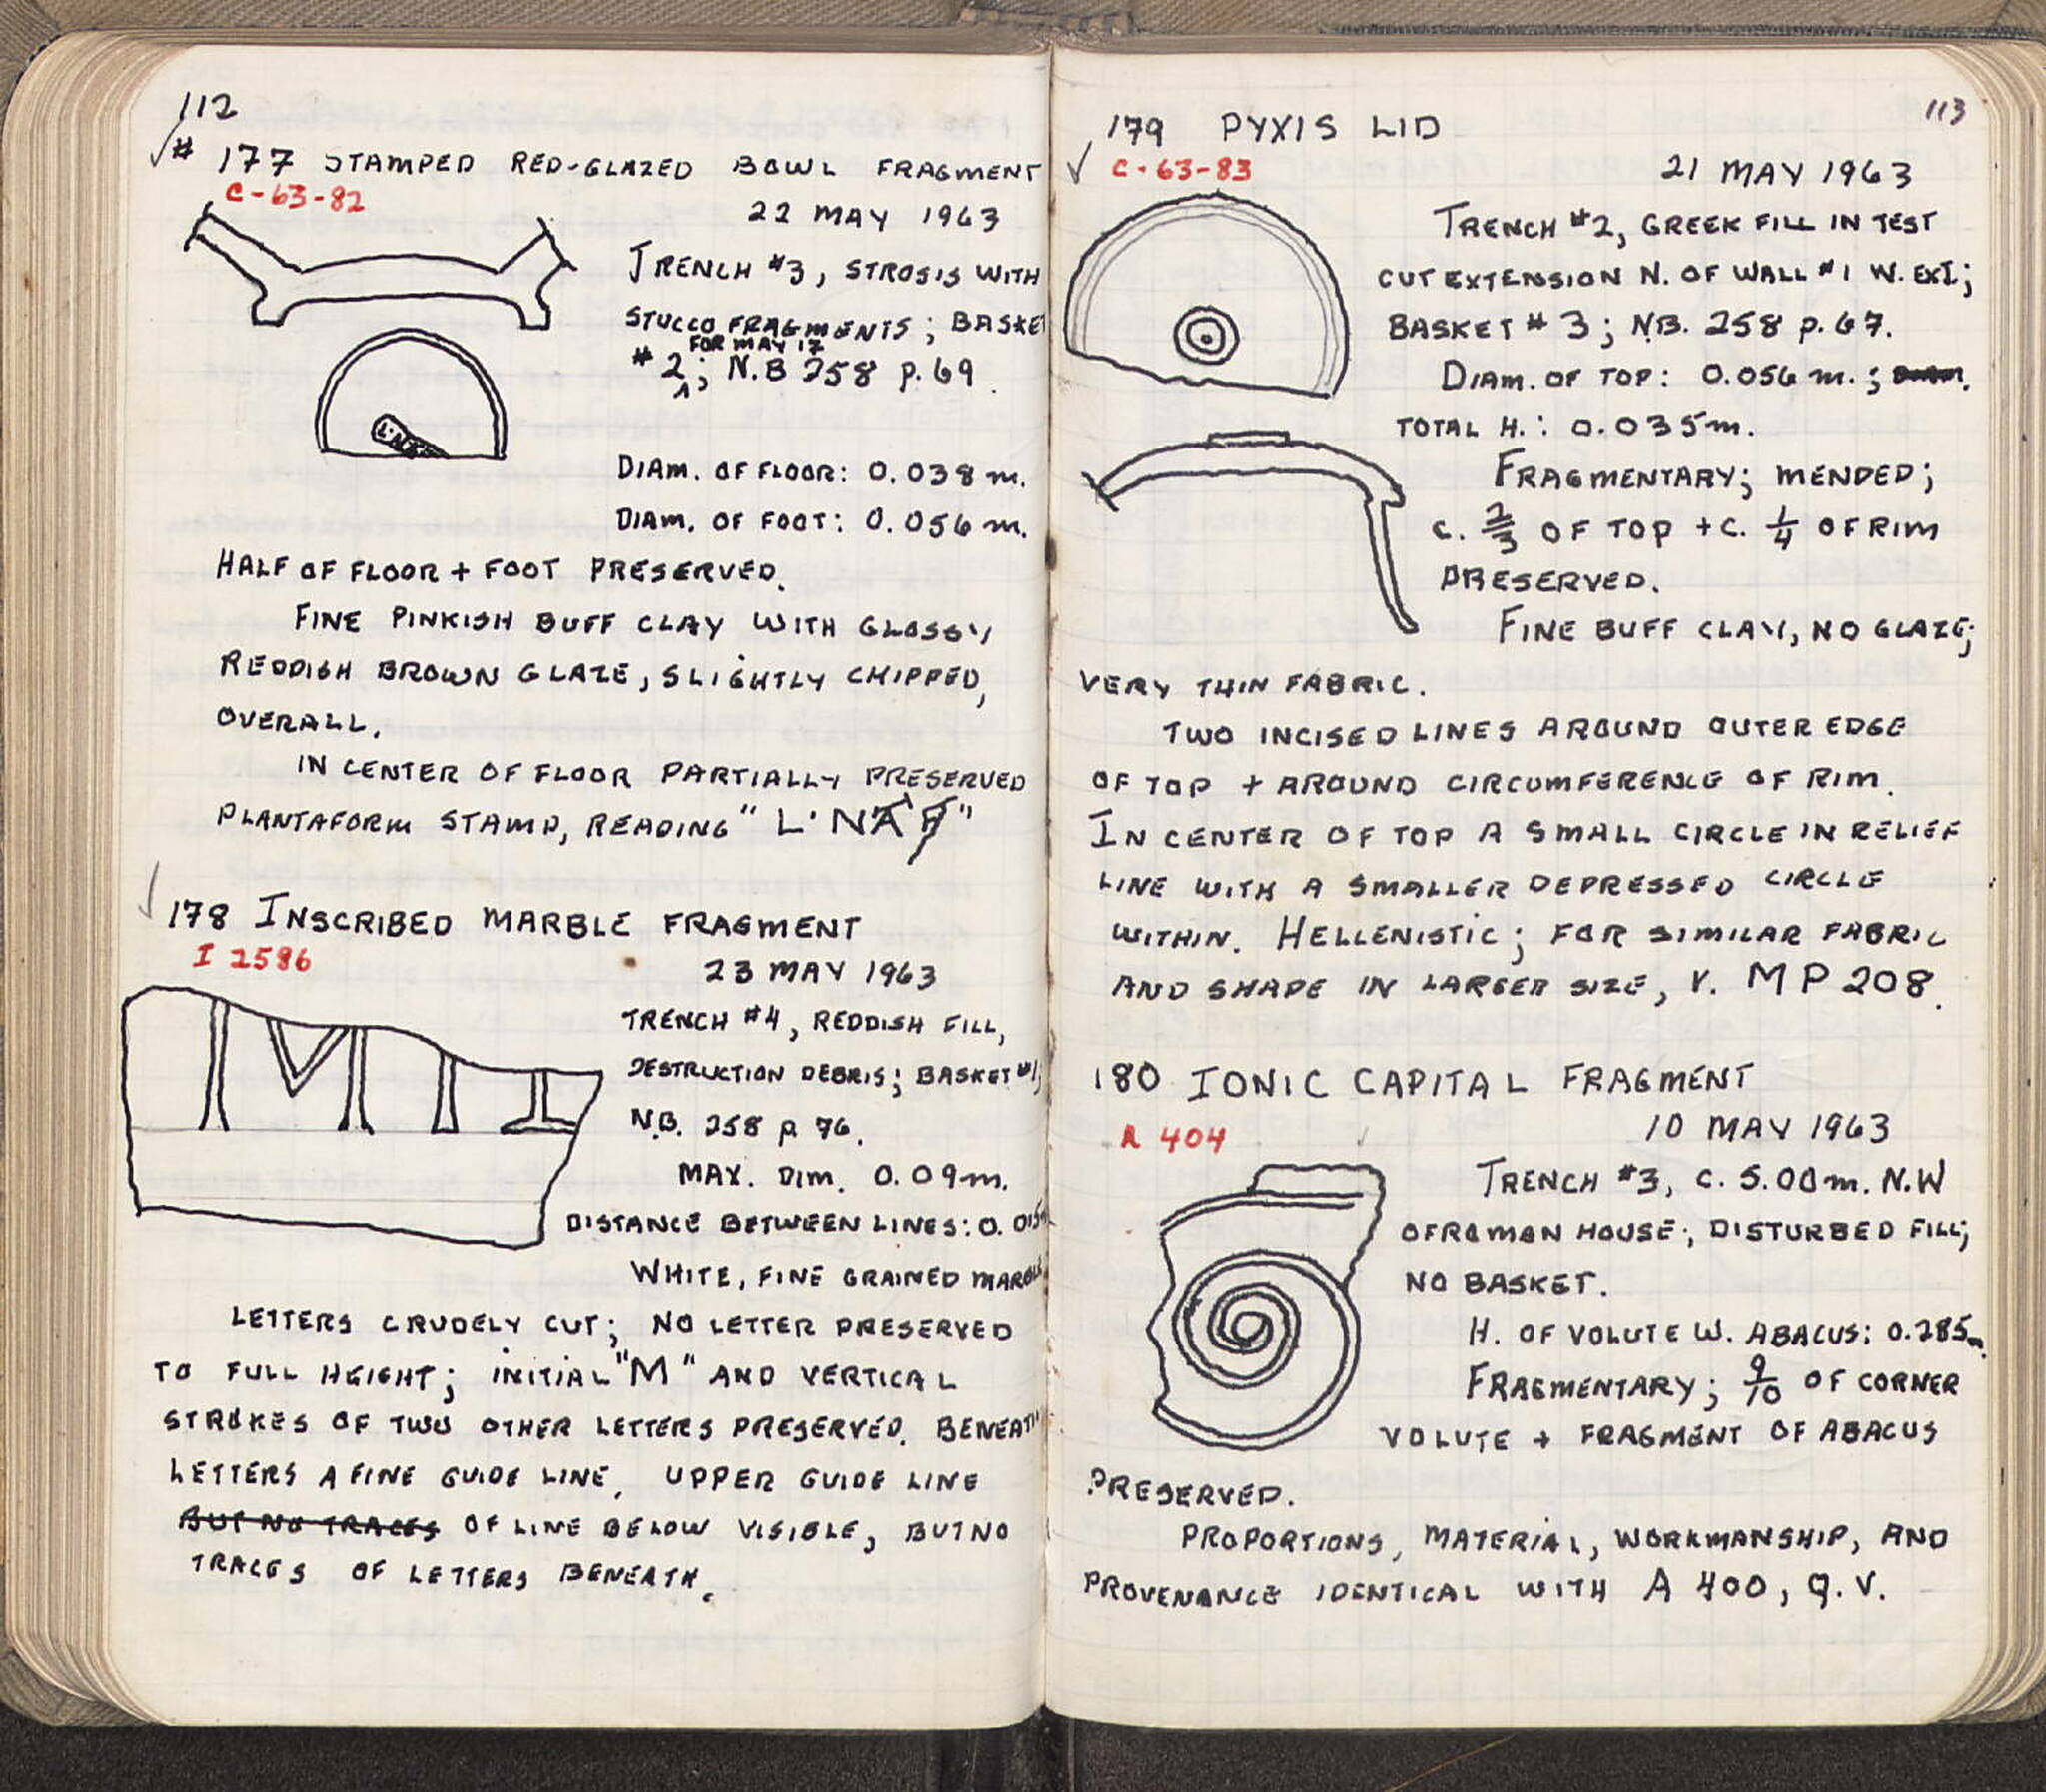 112
# 177 STAMPED RED-GLAZED BOWL FRAGMENT
C-63-82
22 MAY 1963
TRENCH #3, STROSIS WITH
STUCCO FRAGMENTS; BASKET
FOR MAY 17
# 2; N.B 258 p. 69.
L.NA
DIAM. OF FLOOR: 0.038 m.
DIAM. OF FOOT: 0.056 m.
HALF OF FLOOR + FOOT PRESERVED.
FINE PINKISH BUFF CLAY WITH GLOSSY
REDDISH BROWN GLAZE, SLIGHTLY CHIPPED,
OVERALL.
IN CENTER OF FLOOR PARTIALLY PRESERVED
PLANTAFORM STAMP, READING "L· NA"
178 INSCRIBED MARBLE FRAGMENT
I 2586
23 MAY 1963
TRENCH #4, REDDISH FILL,
DESTRUCTION DEBRIS; BASKET #1;
N.B. 258 p. 76.
MAX. DIM. 0.09m.
DISTANCE BETWEEN LINES: 0.015m
WHITE, FINE GRAINED MARBLE
LETTERS CRUDELY CUT; NO LETTER PRESERVED
TO FULL HEIGHT; INITIAL "M" AND VERTICAL
STROKES OF TWO OTHER LETTERS PRESERVED. BENEATH
LETTERS A FINE GUIDE LINE. UPPER GUIDE LINE
BUT NO TRACES OF LINE BELOW VISIBLE, BUT NO
TRACES OF LETTERS BENEATH.
113
179 PYXIS LID
C-63-83
21 MAY 1963
TRENCH #2, GREEK FILL IN TEST
CUT EXTENSION N. OF WALL #1 W. EXT;
BASKET # 3; N.B. 258 p. 67.
DIAM. OF TOP: 0.056 m.; DIAM.
TOTAL H.: 0.035m.
FRAGMENTARY; MENDED;
C. 2/3 OF TOP + C. 1/4 OF RIM
PRESERVED.
FINE BUFF CLAY, NO GLAZE;
VERY THIN FABRIC.
TWO INCISED LINES AROUND OUTER EDGE
OF TOP + AROUND CIRCUMFERENCE OF RIM.
IN CENTER OF TOP A SMALL CIRCLE IN RELIEF
LINE WITH A SMALLER DEPRESSED CIRCLE
WITHIN. HELLENISTIC; FOR SIMILAR FABRIC
AND SHAPE IN LARGER SIZE, V. MP 208.
180 IONIC CAPITAL FRAGMENT
A 404
10 MAY 1963
TRENCH #3, C. 5.00m. N.W
OF ROMAN HOUSE; DISTURBED FILL;
NO BASKET.
H. OF VOLUTE W. ABACUS: 0.285m.
FRAGMENTARY; 9/10 OF CORNER
VOLUTE + FRAGMENT OF ABACUS
PRESERVED.
PROPORTIONS, MATERIAL, WORKMANSHIP, AND
PROVENANCE IDENTICAL WITH A 400, Q.V.